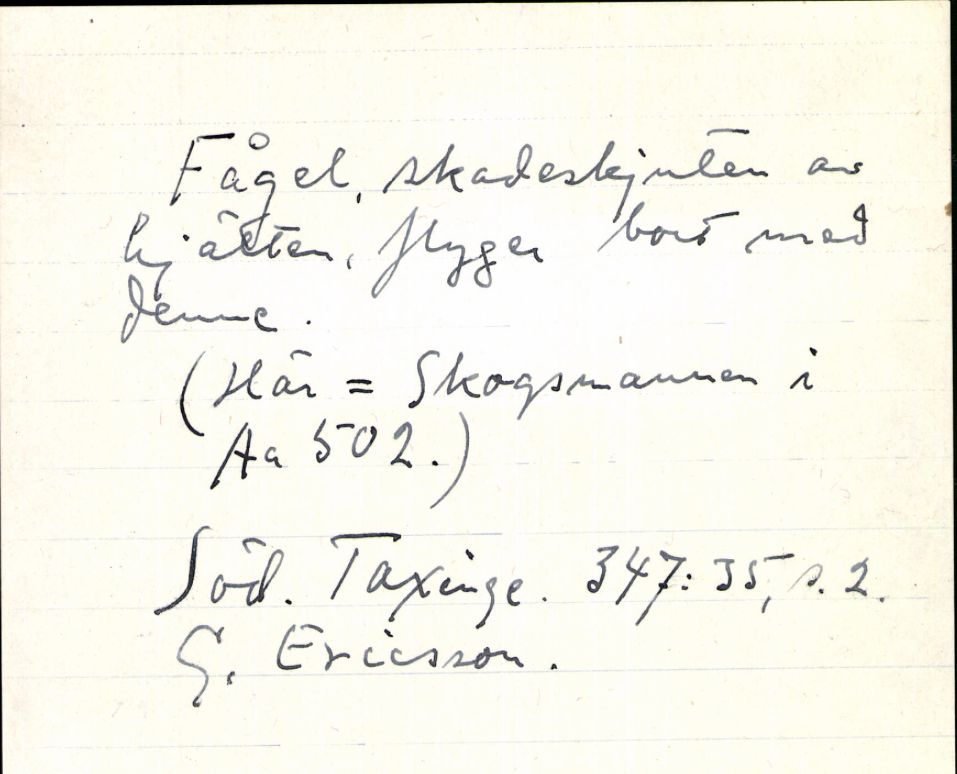 Fågel, skadeskjuten av
hjälten, flyger bort med
denne.
(Här = Skogsmannen i
Aa 502.)
Söd. Taxinge. 347:35, s. 2.
G. Ericsson.